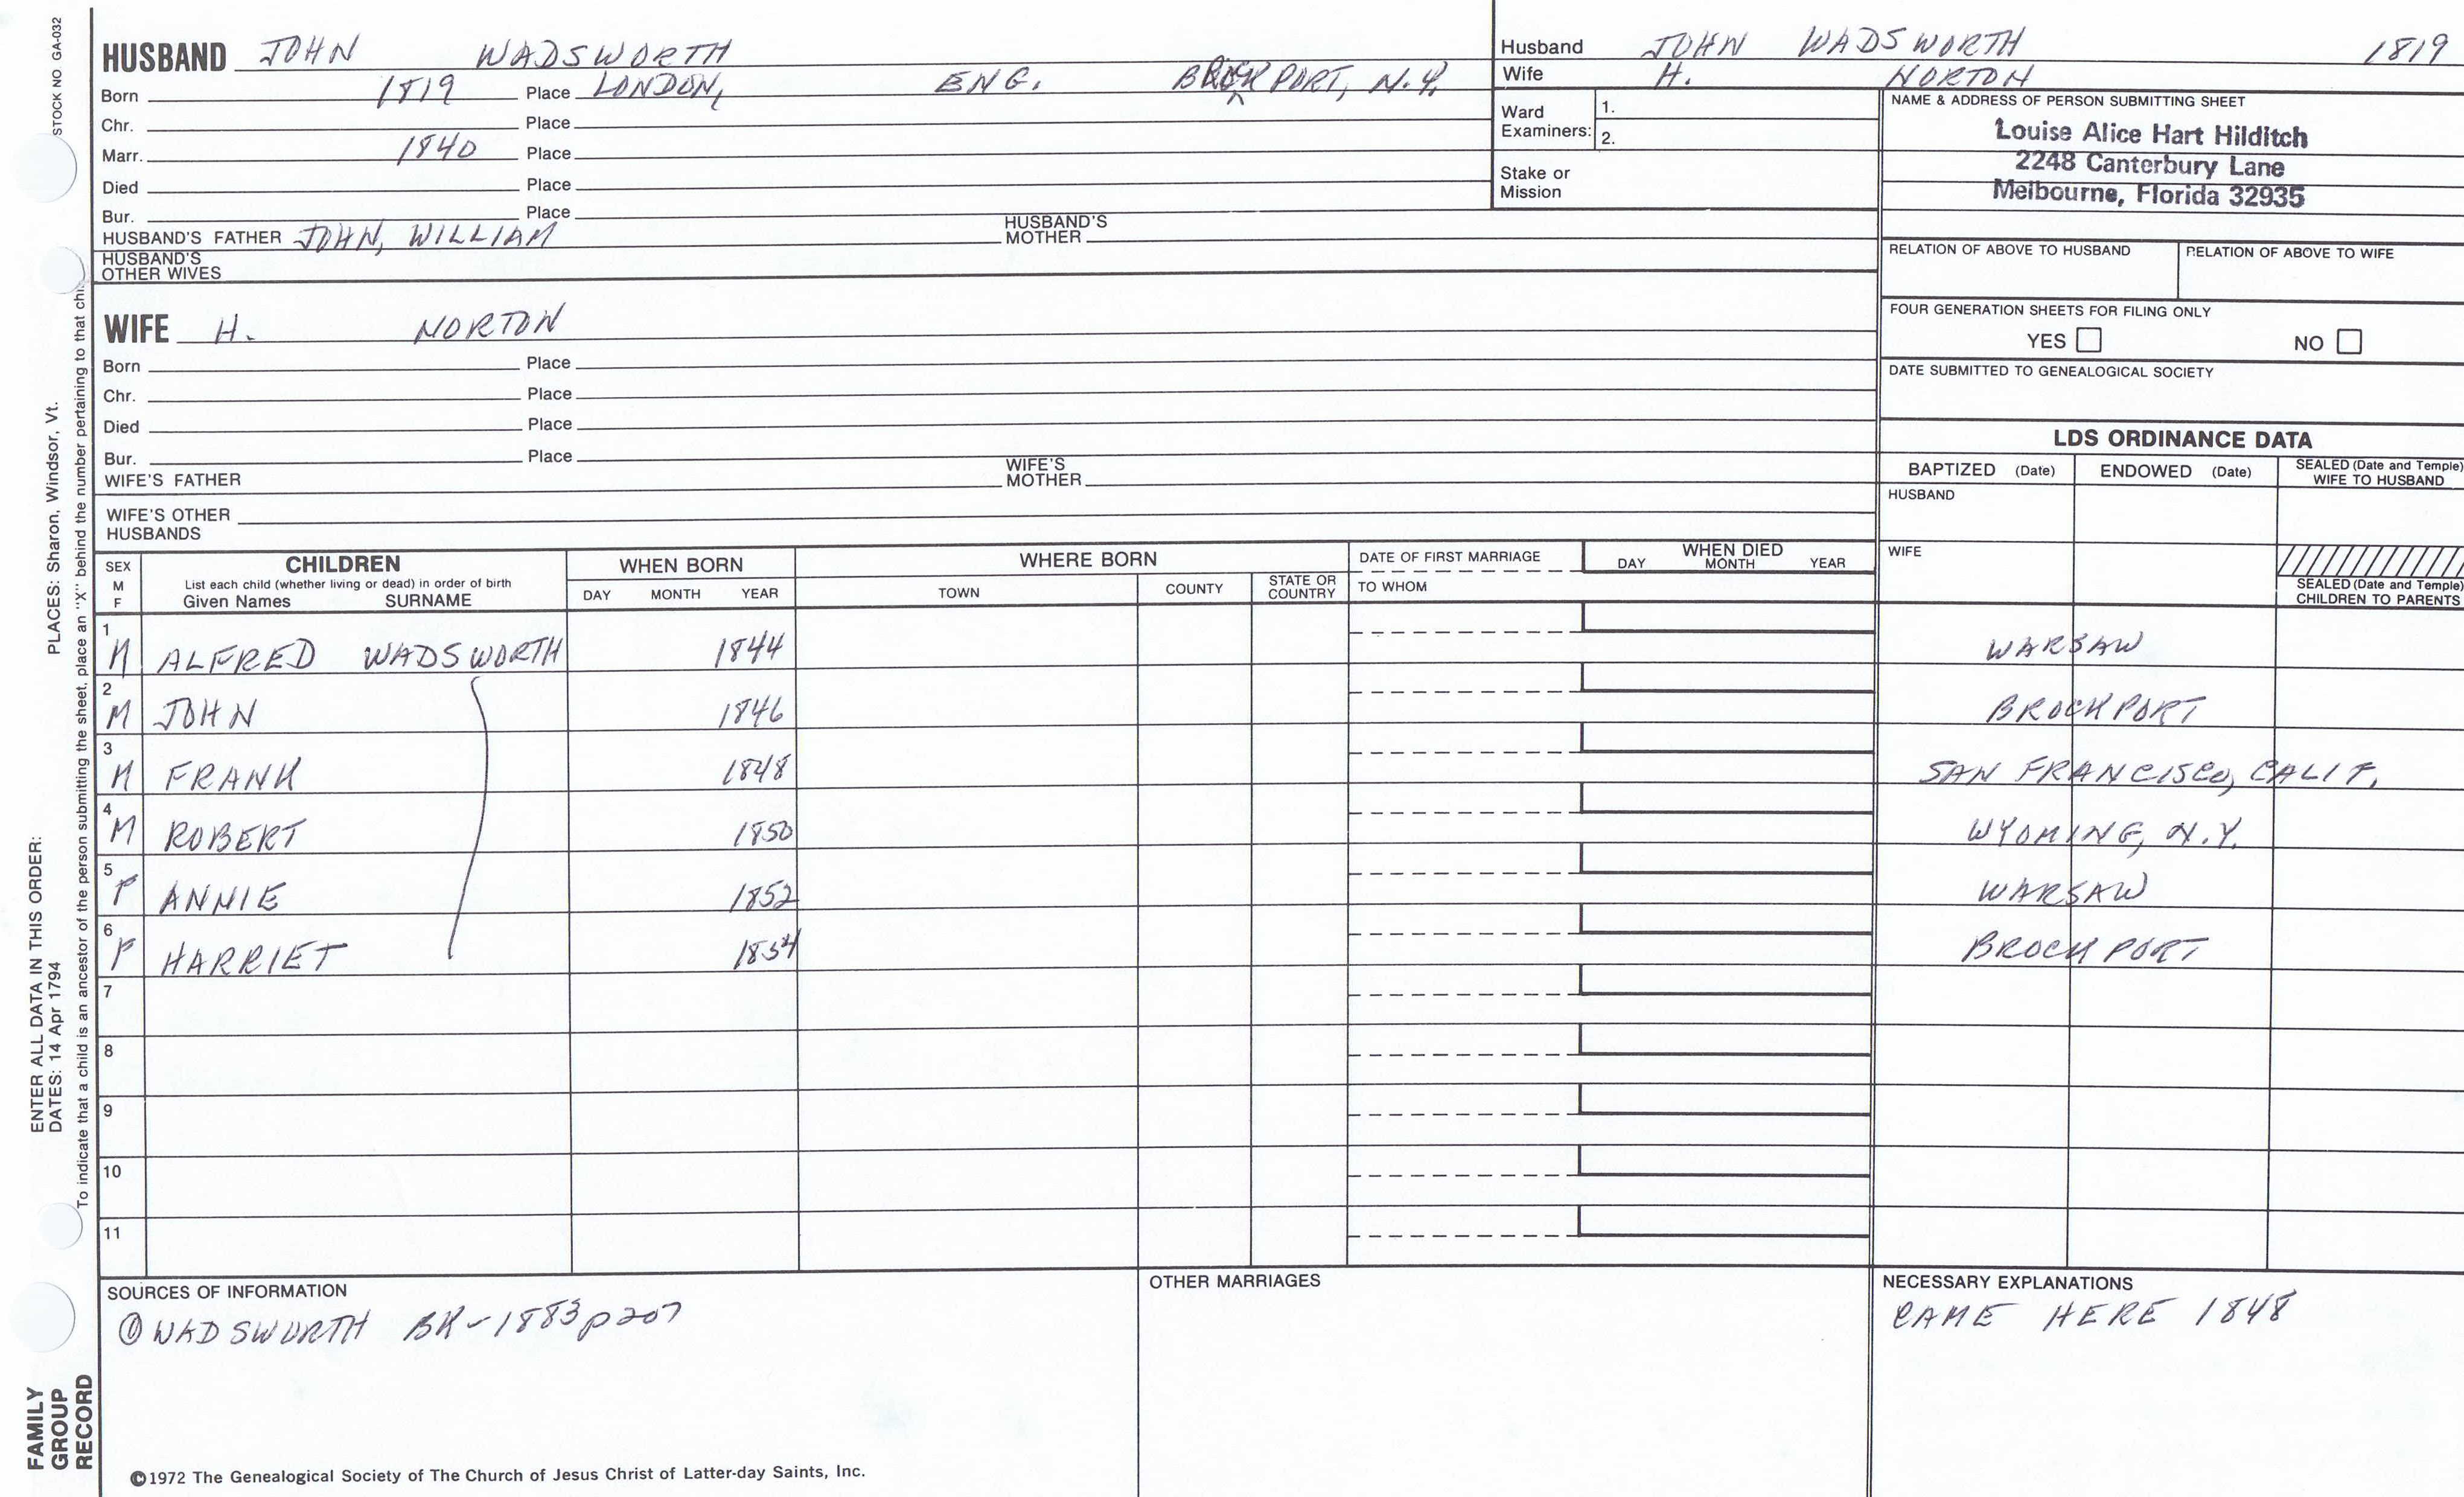 STOCK NO GA-032
HUSBAND JOHN WADSWORTH
Born 1819 Place LONDON, ENG. BROCKPORT, N.Y.
Chr. Place
Marr. 1840 Place
Died Place
Bur. Place
HUSBAND'S FATHER JOHN, WILLIAM HUSBAND'S MOTHER
HUSBAND'S OTHER WIVES
WIFE H. NORTON
Born Place
Chr. Place
Died Place
Bur. Place
WIFE'S FATHER WIFE'S MOTHER
WIFE'S OTHER HUSBANDS
Husband JOHN WADSWORTH 1819
Wife H. NORTON
Ward Examiners: 1.
2.
Stake or Mission
NAME & ADDRESS OF PERSON SUBMITTING SHEET
Louise Alice Hart Hilditch
2248 Canterbury Lane
Melbourne, Florida 32935
RELATION OF ABOVE TO HUSBAND RELATION OF ABOVE TO WIFE
FOUR GENERATION SHEETS FOR FILING ONLY
YES NO
DATE SUBMITTED TO GENEALOGICAL SOCIETY
LDS ORDINANCE DATA
BAPTIZED (Date) ENDOWED (Date) SEALED (Date and Temple) WIFE TO HUSBAND
HUSBAND
WIFE
SEALED (Date and Temple) CHILDREN TO PARENTS
SEX M F
CHILDREN
List each child (whether living or dead) in order of birth
Given Names SURNAME
WHEN BORN
DAY MONTH YEAR
WHERE BORN
TOWN COUNTY STATE OR COUNTRY
DATE OF FIRST MARRIAGE
TO WHOM
WHEN DIED
DAY MONTH YEAR
1 M ALFRED WADSWORTH 1844 WARSAW
2 M JOHN 1846 BROCKPORT
3 M FRANK 1848 SAN FRANCISCO, CALIF.
4 M ROBERT 1850 WYOMING, N.Y.
5 F ANNIE 1852 WARSAW
6 F HARRIET 1854 BROCKPORT
7
8
9
10
11
SOURCES OF INFORMATION
① WADSWORTH BK-1883 p207
OTHER MARRIAGES
NECESSARY EXPLANATIONS
CAME HERE 1848
©1972 The Genealogical Society of The Church of Jesus Christ of Latter-day Saints, Inc.
FAMILY GROUP RECORD
ENTER ALL DATA IN THIS ORDER:
DATES: 14 Apr 1794 PLACES: Sharon, Windsor, Vt.
To indicate that a child is an ancestor of the person submitting the sheet, place an "X" behind the number pertaining to that